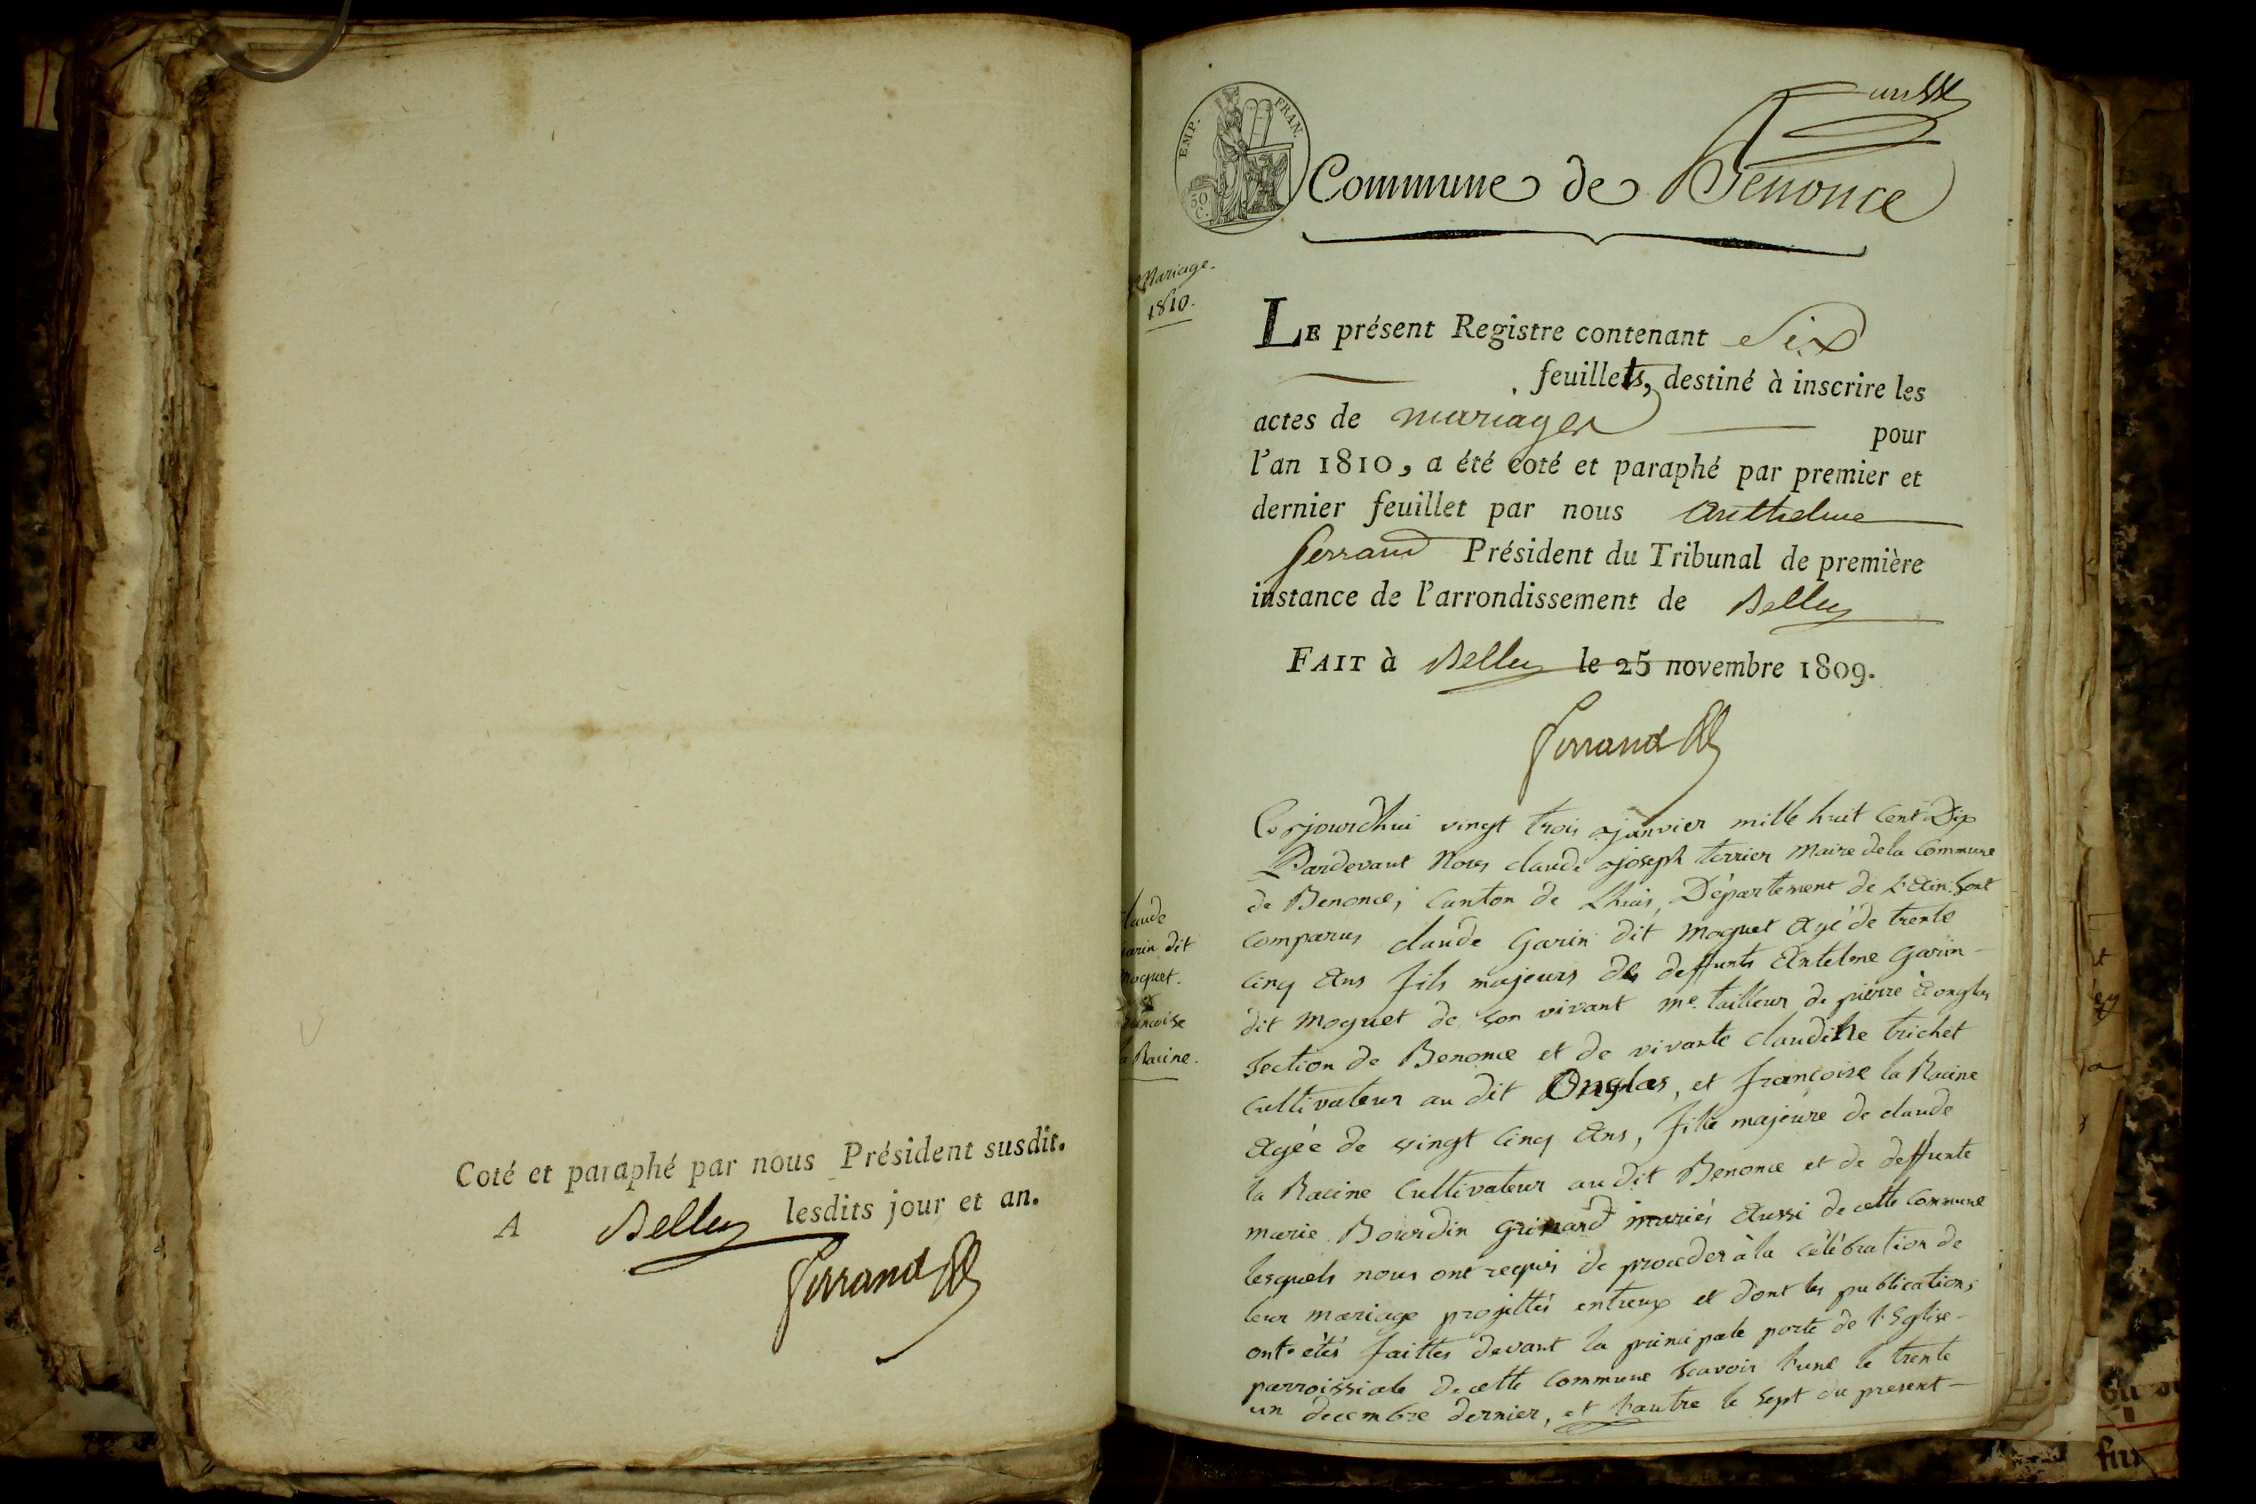 Coté et paraphé par nous Président susdit.
A Belley lesdits jour et an.
Ferrand
EMP. FRAN.
50 C.
Commune de Benonce
Mariage.
1810.
LE présent Registre contenant Six
feuillets, destiné à inscrire les
actes de mariages pour
l'an 1810, a été coté et paraphé par premier et
dernier feuillet par nous Anthelme
Ferrand Président du Tribunal de première
instance de l'arrondissement de Belley
FAIT à Belley le 25 novembre 1809.
Ferrand
laude
arin dit
moquet.
&
françoise
la Racine.
Cejourdhui vingt trois janvier mille huit Cent Dix
Pardevant Nous claude joseph terrier Maire dela Commune
de Benonce, Canton de Lhuis, Département de L'Ain. Sont
Comparus claude Garin dit moquet Agé de trente
Cinq Ans fils majeurs de deffunts Antelme Garin
dit moquet de son vivant me. tailleur de pierre à onglas
Section de Benonce et de vivante claudine trichet
Cultivateur au dit Onglas, et françoise la Racine
Agée de vingt Cinq Ans, fille majeure de claude
la Racine Cultivateur au dit Benonce et de deffunte
marie Bourdin Grinand mariés Aussi de cette Commune
lesquels nous ont requis de proceder à la célébration de
leur mariage projettés entreux et dont les publications
ont étés faittes devant la principale porte de l'Eglise
parroissiale de cette Commune Scavoir l'une le trente
un decembre dernier, et l'autre le Sept du present